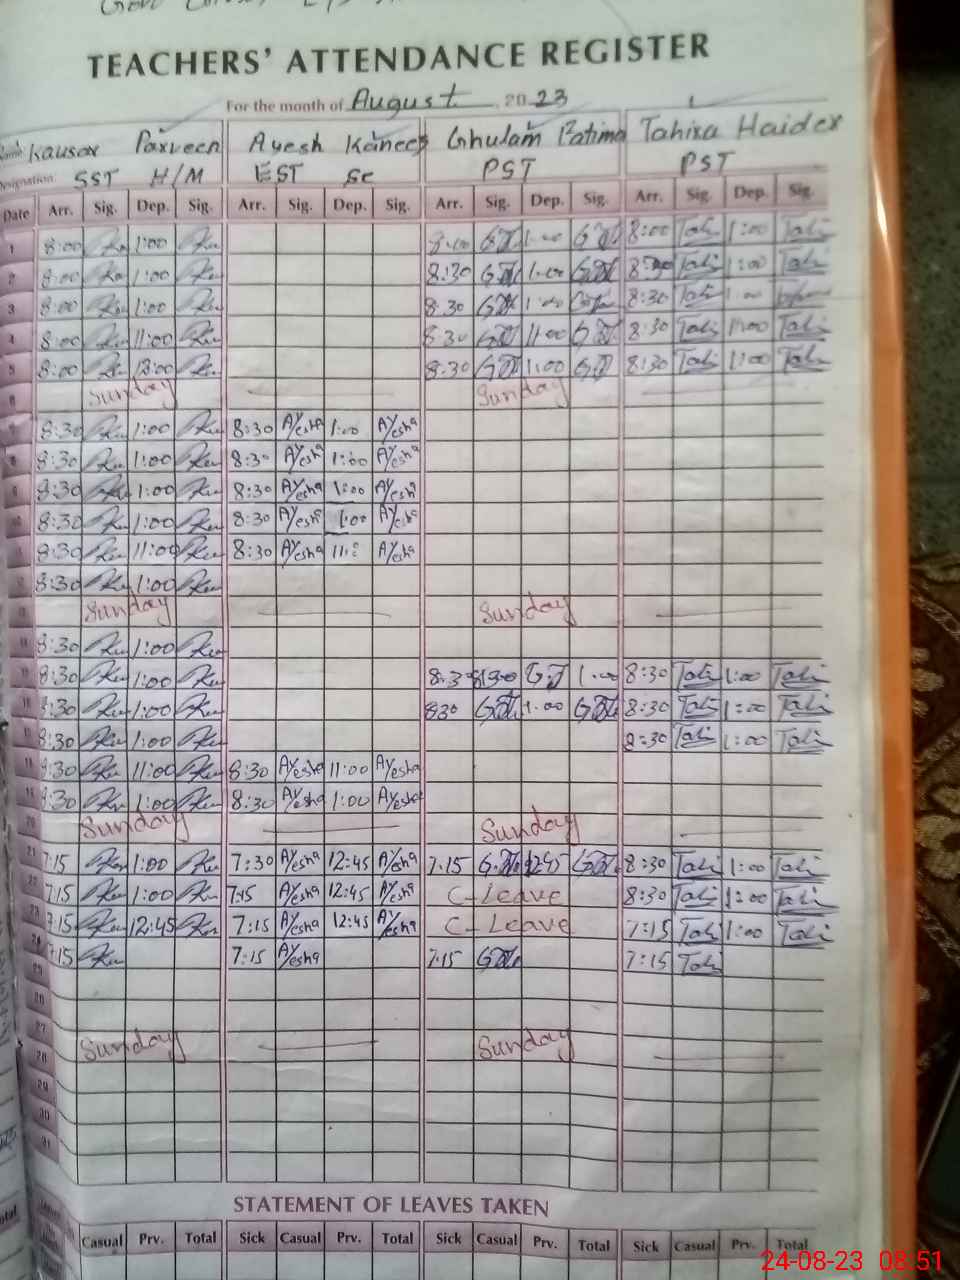 TEACHERS' ATTENDANCE REGISTER
For the month of August 2023
Name Kausar Parveen Ayesh Kaneez Ghulam Fatima Tahira Haider
Designation SST H/M EST Sc PST PST
Date Arr. Sig. Dep. Sig. Arr. Sig. Dep. Sig. Arr. Sig. Dep. Sig. Arr. Sig. Dep. Sig.
1 8:00 1:00 8:00 Tahi 1:00 Tahi
2 8:00 1:00 8:30 1:00 Tahi 1:00 Tahi
3 8:00 1:00 8:30 1:00 8:30 Tahi 1:00
4 8:00 11:00 8:30 11:00 8:30 Tahi 11:00 Tahi
5 8:00 8:30 1:00 8:30 Tahi 1:00 Tahi
6 Sunday Sunday
7 8:30 1:00 8:30 Ayesha 1:00 Ayesha
8 8:30 1:00 8:30 Ayesha 1:00 Ayesha
9 8:30 1:00 8:30 Ayesha 1:00 Ayesha
10 8:30 1:00 8:30 Ayesha 1:00 Ayesha
8:30 11:00 8:30 Ayesha 11: Ayesha
12 8:30 1:00
13 Sunday Sunday
8:30 1:00
8:30 1:00 8:30 8:30 1:00 8:30 Tahi 1:00 Tahi
8:30 1:00 830 1.00 8:30 Tahi 1:00 Tahi
8:30 1:00 8:30 Tahi 1:00 Tahi
8:30 11:00 8:30 Ayesha 11:00 Ayesha
8:30 1:00 8:30 Ayesha 1:00 Ayesha
20 Sunday Sunday
21 7:15 1:00 7:30 Ayesha 12:45 Ayesha 7.15 1245 8:30 Tahi 1:00 Tahi
22 7:15 1:00 7:15 Ayesha 12:45 Ayesha C-Leave 8:30 Tahi 1:00 Tahi
23 7:15 12:45 7:15 Ayesha 12:45 Ayesha C-Leave 7:15 Tahi 1:00 Tahi
24 7:15 7:15 Ayesha 7.15 7:15 Tahi
25
26
27 Sunday Sunday
28
29
30
31
STATEMENT OF LEAVES TAKEN
Casual Prv. Total Sick Casual Prv. Total Sick Casual Prv. Total Sick Casual Prv. Total
24-08-23 08:51